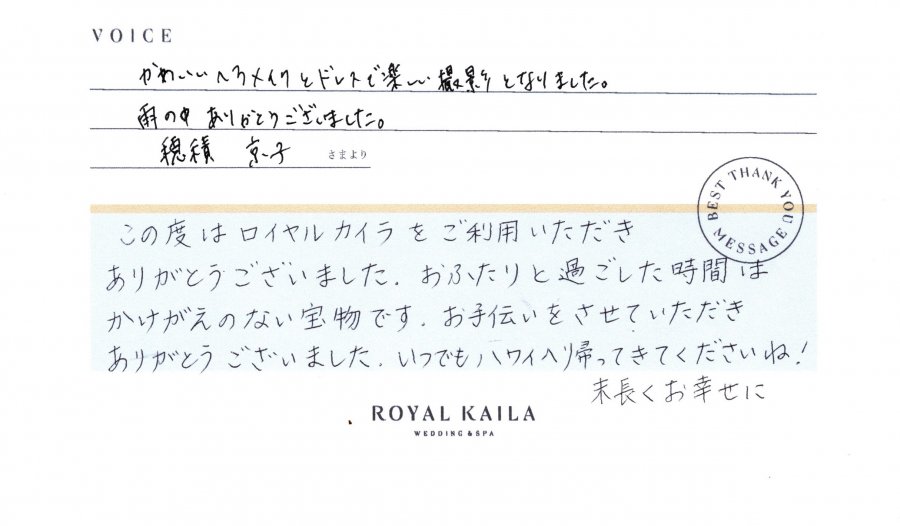 VOICE
かわいいヘアメイクとドレスで楽しい撮影となりました。
雨の中ありがとうございました。
穂積 京子 さまより
BEST THANK YOU MESSAGE
この度はロイヤルカイラをご利用いただき
ありがとうございました. おふたりと過ごした時間は
かけがえのない宝物です. お手伝いをさせていただき
ありがとうございました. いつでもハワイへ帰ってきてくださいね!
末長くお幸せに
ROYAL KAILA
WEDDING & SPA